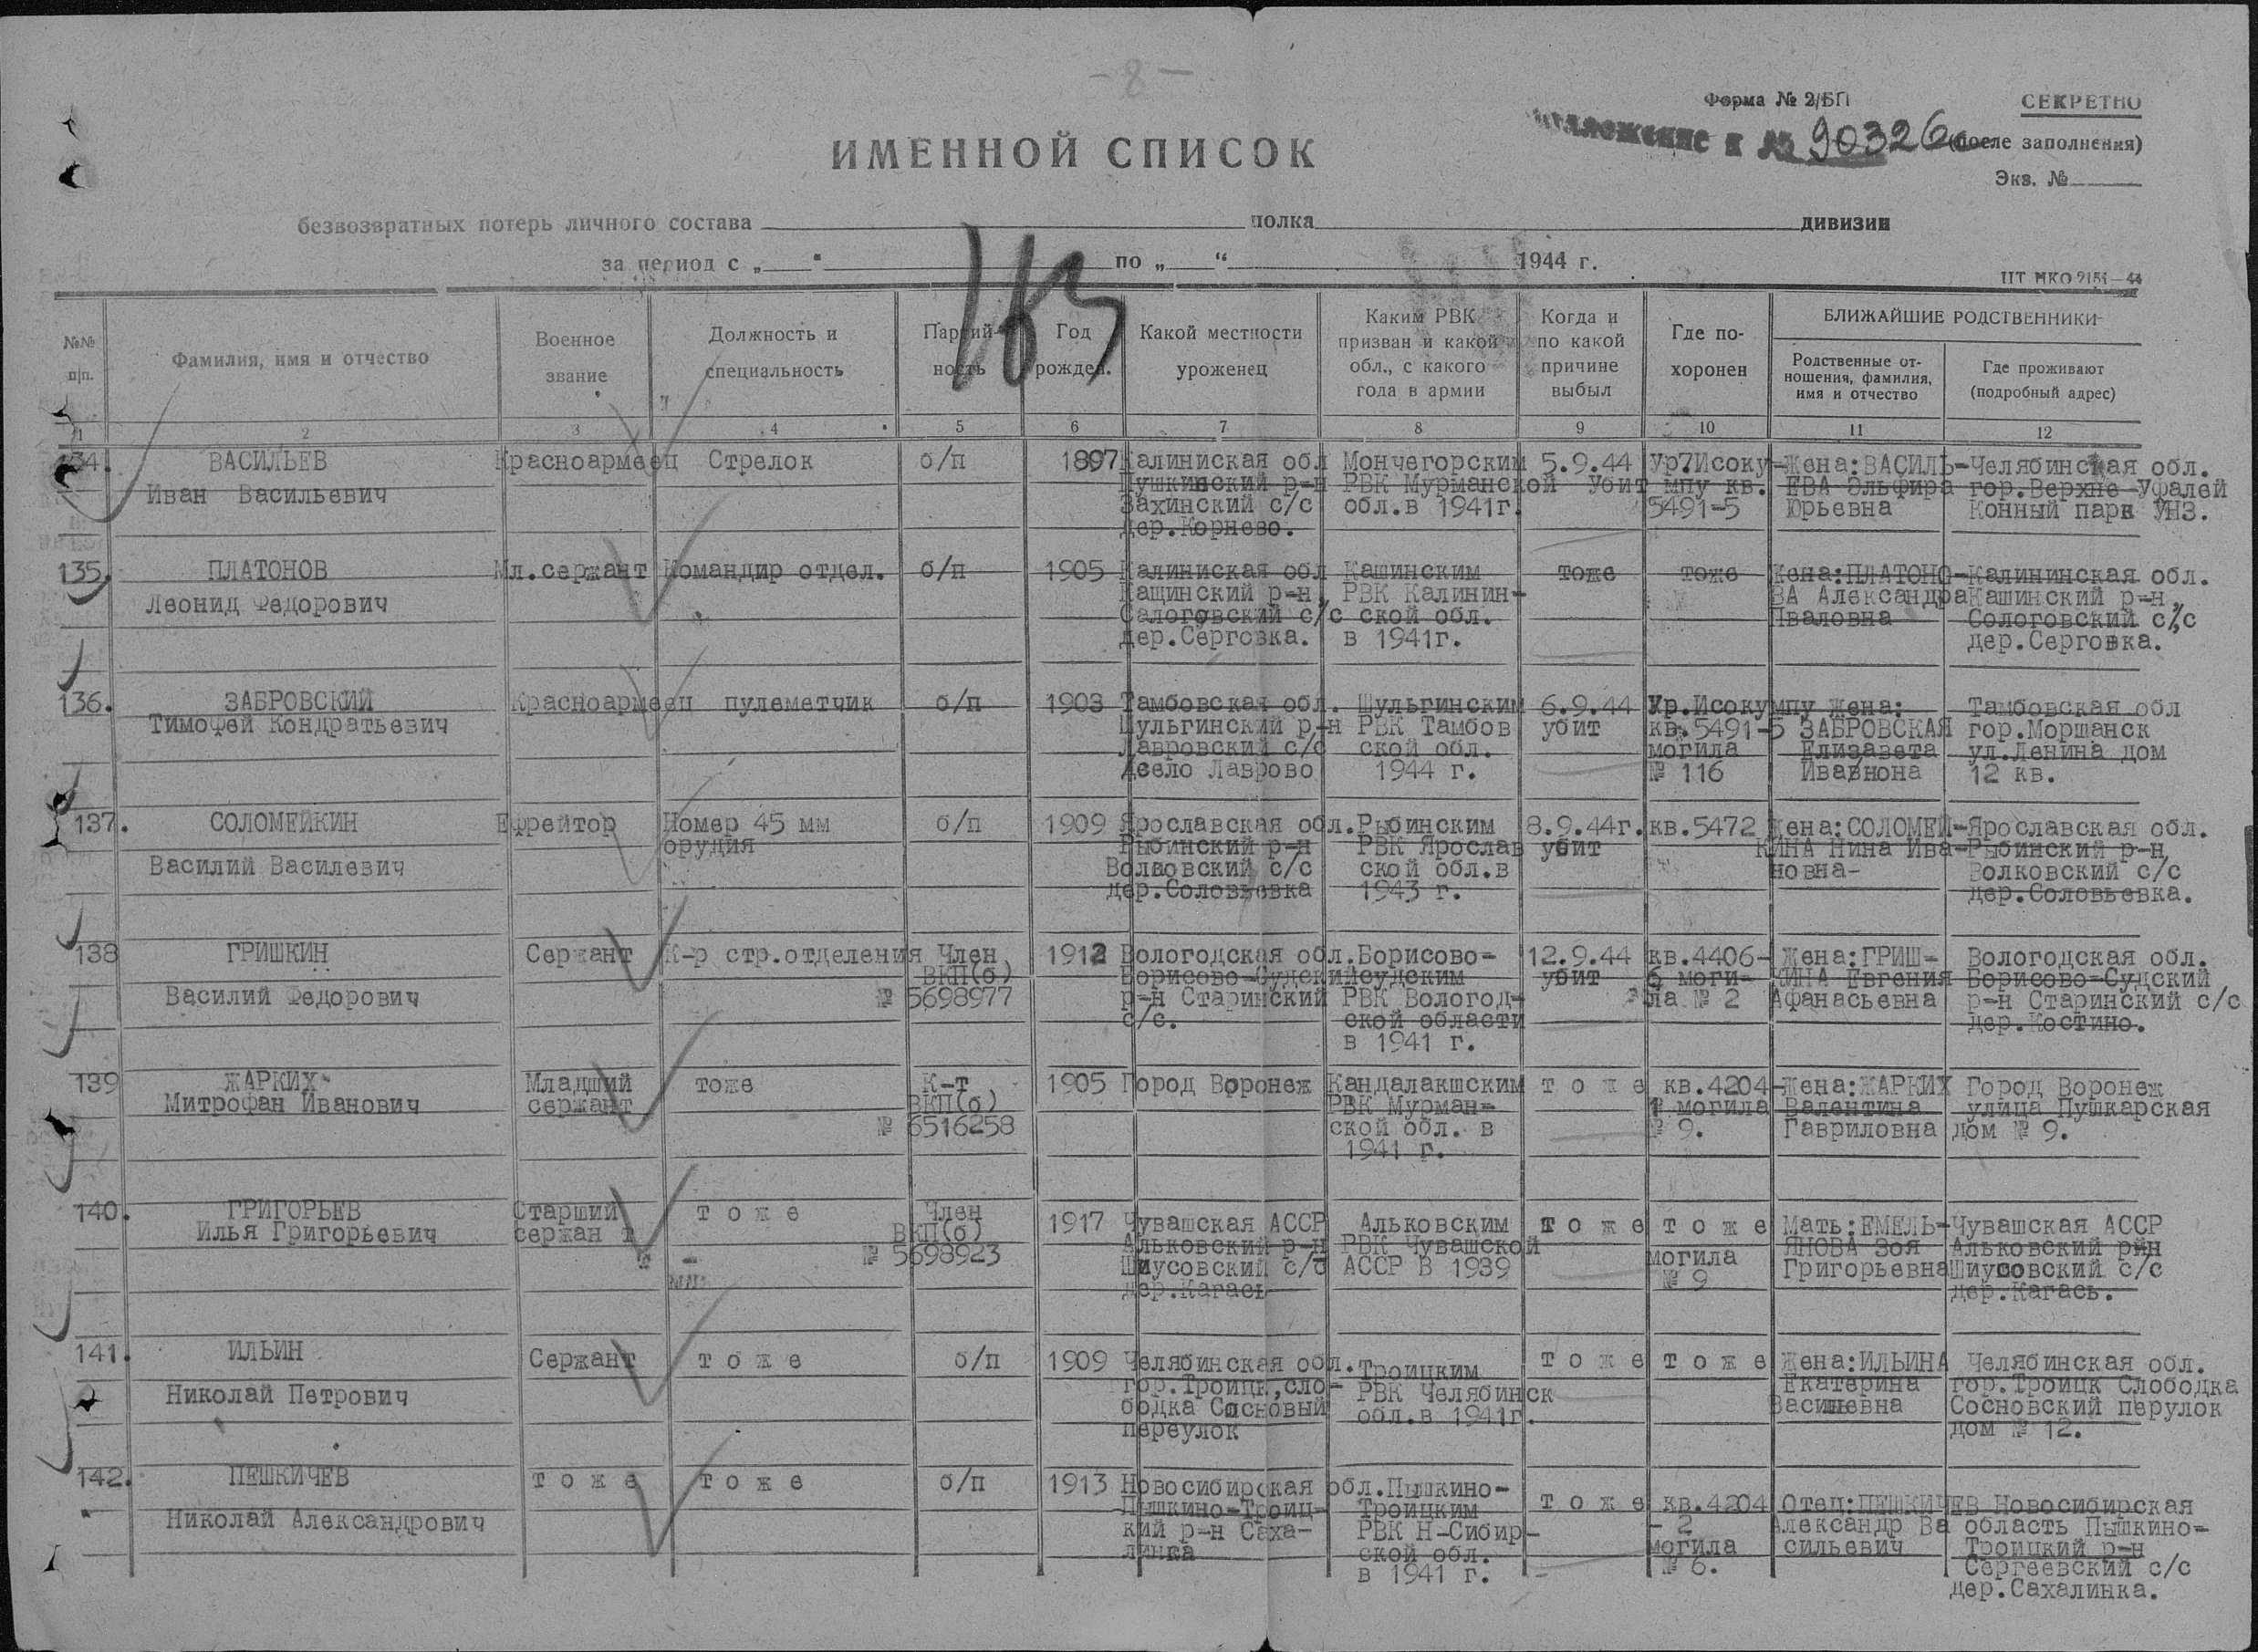 - 8 -
Форма № 2/БП
СЕКРЕТНО
ИМЕННОЙ СПИСОК
к № 90326с
(после заполнения)
Экз. №
безвозвратных потерь личного состава полка дивизии
за период с „ “ по „ “ 1944 г.
№№ п|п.
Фамилия, имя и отчество
Военное звание
Должность и специальность
Партий-ность
Год рожден.
Какой местности уроженец
Каким РВК призван и какой обл., с какого года в армии
Когда и по какой причине выбыл
Где по-хоронен
БЛИЖАЙШИЕ РОДСТВЕННИКИ
Родственные от-ношения, фамилия, имя и отчество
Где проживают (подробный адрес)
1 2 3 4 5 6 7 8 9 10 11 12
134. ВАСИЛЬЕВ Красноармеец Стрелок б/п 1897 Калиниская обл Мончегорским 5.9.44 Ур?Исоку- Жена:ВАСИЛЬ- Челябинская обл.
Иван Васильевич Пушкинский р-н РВК Мурманской Убит мпу кв. ЕВА Эльфира гор.Верхне-Уфалей
Захинский с/с обл.в 1941г. 5491-5 Юрьевна Конный парк УНЗ.
дер.Корнево.
135. ПЛАТОНОВ Мл.сержант Командир отдел. б/п 1905 Калиниская обл Кашинским тоже тоже Жена:ПЛАТОНО- Калининская обл.
Леонид Федорович Кащинский р-н, РВК Калинин- ВА Александра Кашинский р-н,
Салоговский с/с ской обл. Иваловна Сологовский с/с
дер.Серговка. в 1941г. дер.Серговка.
136. ЗАБРОВСКИЙ Красноармеец пулеметчик б/п 1903 Тамбовская обл. Шульгинским 6.9.44 Ур.Исокумпу жена: Тамбовская обл
Тимофей Кондратьевич Шульгинский р-н РВК Тамбов убит кв.5491-5 ЗАБРОВСКАЯ гор.Моршанск
Лавровский с/с ской обл. могила Елизавета ул.Ленина дом
село Лаврово 1944 г. № 116 12 кв.
137. СОЛОМЕЙКИН Ефрейтор Номер 45 мм б/п 1909 Ярославская обл. Рыбинским 8.9.44г. кв.5472 Жена:СОЛОМЕЙ- Ярославская обл.
орудия Рыбинский р-н РВК Ярослав убит КИНА Нина Ива- Рыбинский р-н
Василий Василевич с/с ской обл.в новна- Волковский с/с
дер.Соловьевка 1943 г. дер.Соловьевка.
138 ГРИШКИН Сержант К-р стр.отделения Член 1912 Вологодская обл. Борисово- 12.9.44 кв.4406- Жена:ГРИШ- Вологодская обл.
ВКП(б) Борисово-Судский судским убит 6 моги- КИНА Евгения Борисово-Судский
Василий Федорович № 5698977 р-н Старинский РВК Вологод- ла № 2 Афанасьевна р-н Старинский с/с
с/с. ской области дер.Костино.
в 1941 г.
139 ЖАРКИХ Младший тоже К-т 1905 Город Воронеж Кандалакшским т о ж е кв.4204- Жена:ЖАРКИХ Город Воронеж
Митрофан Иванович сержант ВКП(б) РВК Мурман- могила Валентина улица Пушкарская
№ 6516258 ской обл. в № 9. Гавриловна дом № 9.
1941 г.
140. ГРИГОРЬЕВ Старший т о ж е Член 1917 Чувашская АССР Альковским т о ж е т о ж е Мать:ЕМЕЛЬ- Чувашская АССР
Илья Григорьевич сержан т ВКП(б) Альковский р-н РВК Чувашской ЯНОВА Зоя Альковский р-н
№ 5698923 Шиусовский с/с АССР В 1939 могила Григорьевна Шиусовский с/с
дер.Кагась № 9 дер.Кагась.
141. ИЛЬИН Сержант т о ж е б/п 1909 Челябинская обл. Троицким т о ж е т о ж е Жена:ИЛЬИНА Челябинская обл.
гор.Троицк,сло- РВК Челябинск Екатерина гор.Троицк Слободка
Николай Петрович бодка Сосновый обл.в 1941г. Сосновский перулок
переулок дом № 12.
142. ПЕШКИЧЕВ т о ж е т о ж е б/п 1913 Новосибирская обл. Пышкино- т о ж е кв.4204 Отец:ПЕШКИЧЕВ Новосибирская
Пышкино-Троиц- Троицким - 2 Александр Ва область Пышкино-
Николай Александрович кий р-н Саха- РВК Н-Сибир- могила сильевич Троицкий р-н
линка ской обл. № 6. Сергеевский с/с
в 1941 г. дер.Сахалинка.